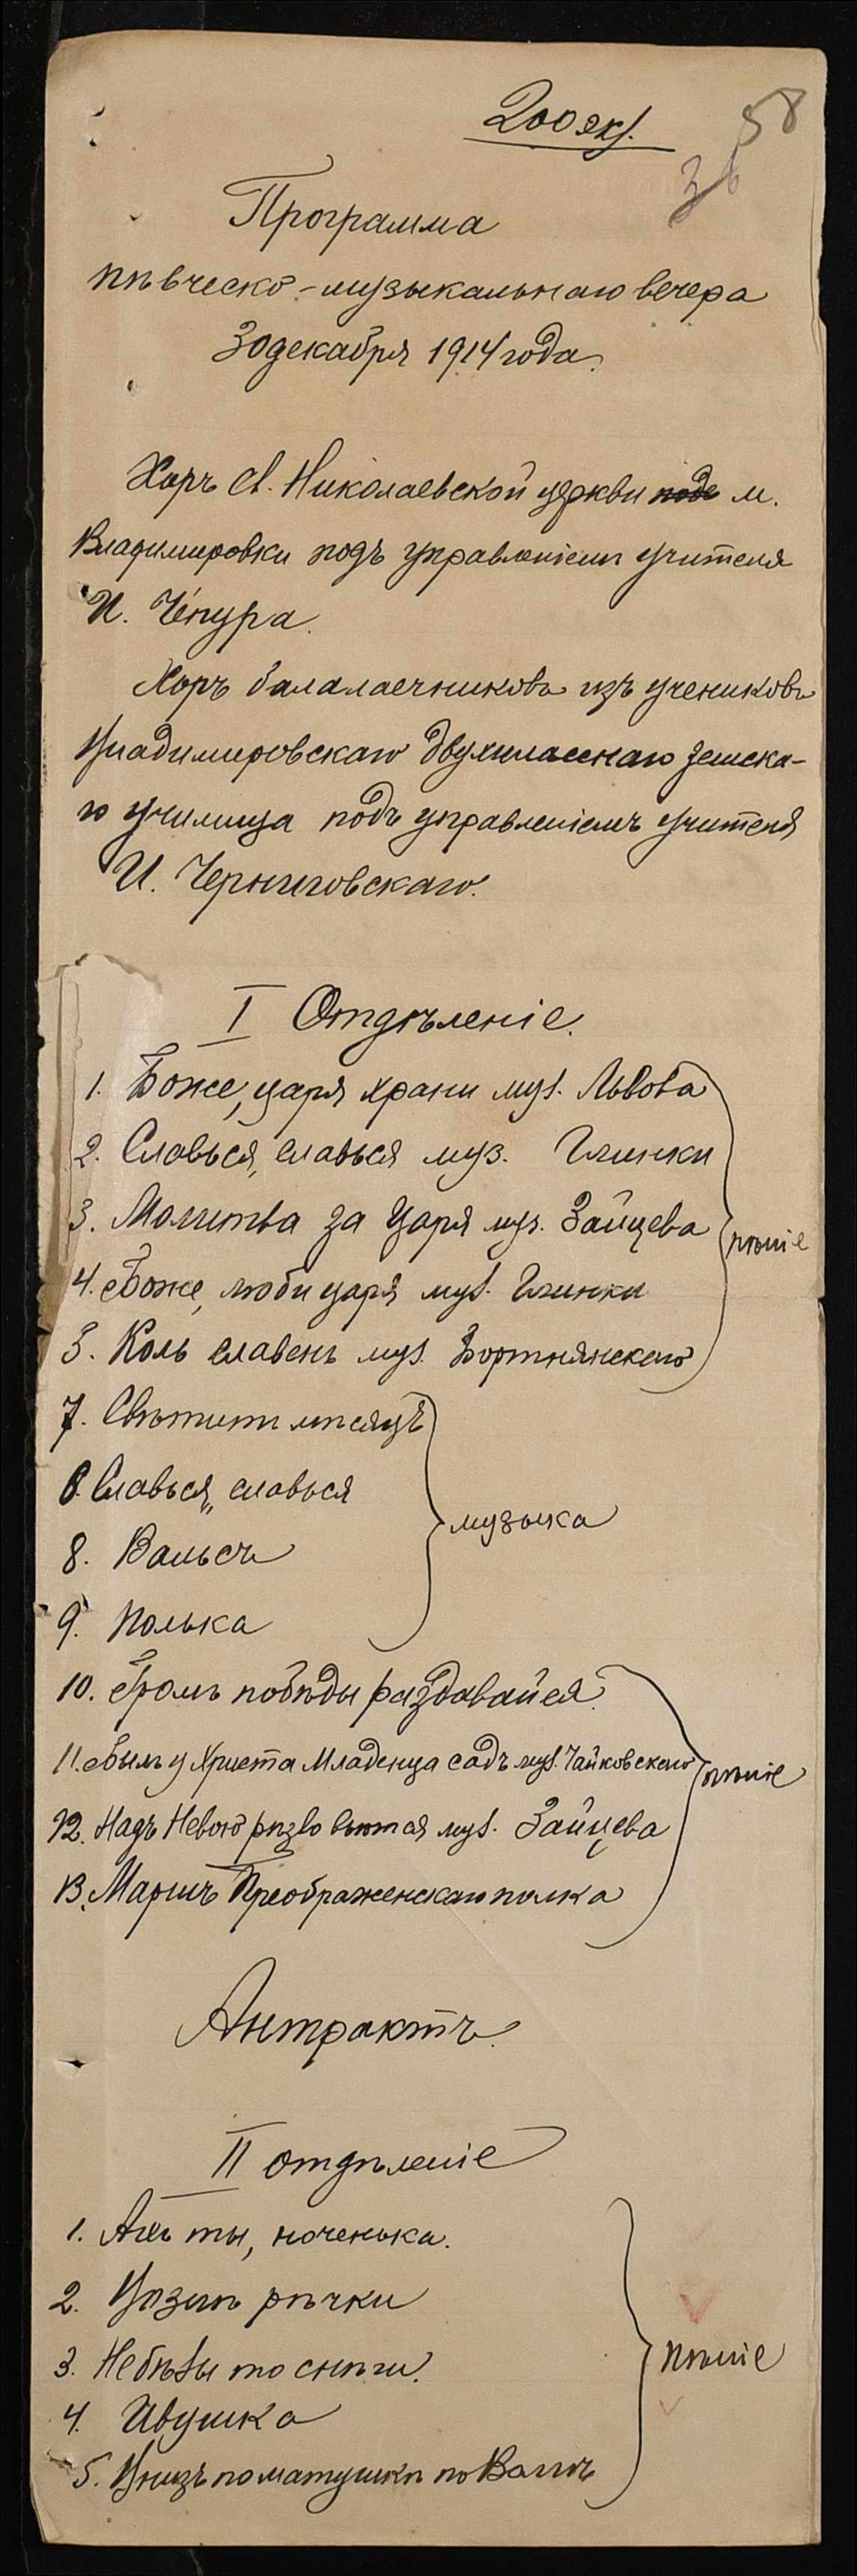 200 экз.
58
36
Программа
пѣвческо-музыкальнаго вечера
30 декабря 1914 года.
Хоръ св. Николаевской церкви подъ м.
Владимировки подъ управленіемъ учителя
И. Чепура.
Хоръ балалаечниковъ изъ учениковъ
Владимировскаго двухкласснаго земска-
го училища подъ управленіемъ учителя
И. Черниговскаго.
I Отдѣленіе.
1. Боже, царя храни муз. Львова
2. Славься, славься муз. Глинки
3. Молитва за Царя муз. Зайцева
пѣніе
4. Боже, люби царя муз. Глинки
5. Коль славенъ муз. Бортнянскаго
7. Свѣтитъ мѣсяцъ
8. Славься, славься
музыка
8. Вальсъ
9. Полька
10. Громъ побѣды раздавайся.
11. Былъ у Христа Младенца садъ муз. Чайковскаго
пѣніе
12. Надъ Невою рѣзво вьются муз. Зайцева
13. Маршъ Преображенскаго полка
Антрактъ.
II отдѣленіе
1. Ахъ ты, ноченька.
2. Возлѣ рѣчки
3. Не бѣлы то снѣги.
пѣніе
4. Ивушка
5. Внизъ по матушкѣ по Волгѣ